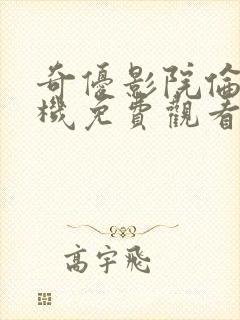 奇優影院倫
機免費觀看
高宇飛